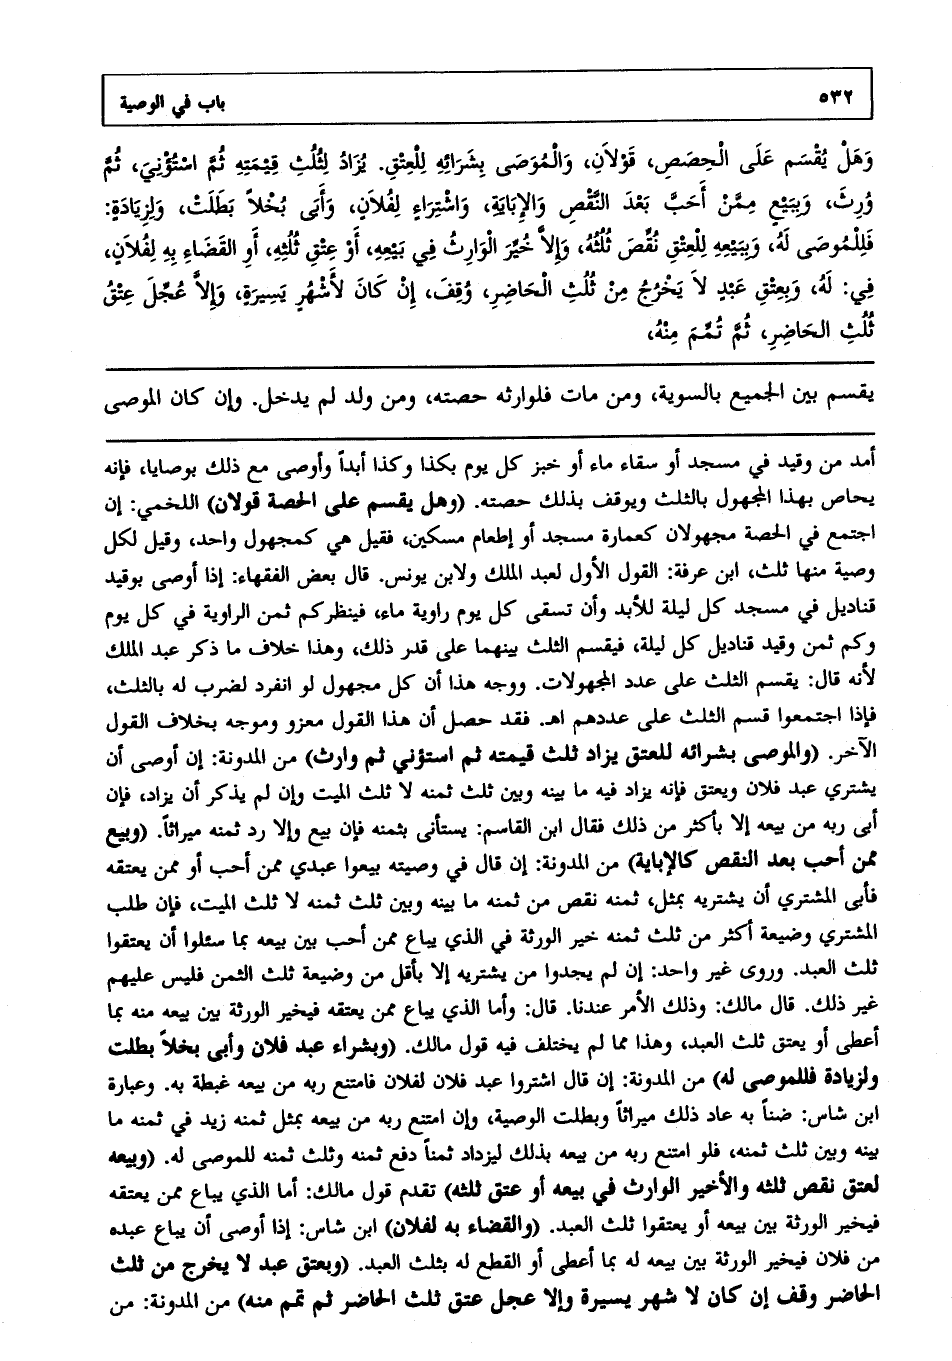 ٥٣٢ باب في الوصية
وَهَلْ يُقْسَم عَلَى الْحِصَصِ، قَوْلاَنِ، وَالْمُوَصَى بِشَرَائِهِ لِلْعِتْقِ. يُزَادُ لِثُلُثِ قِيْمَتِهِ ثُمَّ اسْتُؤْنِيَ، ثُمَّ
وُرِثَ، وَبِبَيْعٍ مِمَّنْ أَحَبَّ بَعْدَ النَّقْصِ وَالإِبَايَةِ، وَاشْتِرَاءٍ لِفُلاَنٍ، وَأَبَى بُخْلاً بَطَلَتْ، وَلِزِيَادَةٍ:
فَلِلْمُوصَى لَهُ، وَبِبَيْعِهِ لِلْعِتْقِ نُقِّصَ ثُلُثُهُ، وَإِلاَّ خُيِّرَ الْوَارِثُ فِي بَيْعِهِ، أَوْ عِتْقِ ثُلُثِهِ، أَوِ القَضَاءِ بِهِ لِفُلاَنٍ،
فِي: لَهُ، وَبِعِتْقِ عَبْدٍ لاَ يَخْرُجُ مِنْ ثُلُثِ الْحَاضِرِ، وُقِفَ، إِنْ كَانَ لأَشْهُرٍ يَسِيرَةٍ، وَإِلاَّ عُجِّلَ عِتْقُ
ثُلُثِ الحَاضِرِ، ثُمَّ تُمِّمَ مِنْهُ،
يقسم بين الجميع بالسوية، ومن مات فلوارثه حصته، ومن ولد لم يدخل. وإن كان الموصى
أمد من وقيد في مسجد أو سقاء ماء أو خبز كل يوم بكذا وكذا أبداً وأوصى مع ذلك بوصايا، فإنه
يحاص بهذا المجهول بالثلث ويوقف بذلك حصته. (وهل يقسم على الحصة قولان) اللخمي: إن
اجتمع في الحصة مجهولان كعمارة مسجد أو إطعام مسكين، فقيل هي كمجهول واحد، وقيل لكل
وصية منها ثلث، ابن عرفة: القول الأول لعبد الملك ولابن يونس. قال بعض الفقهاء: إذا أوصى بوقيد
قناديل في مسجد كل ليلة للأبد وأن تسقى كل يوم راوية ماء، فينظر كم ثمن الراوية في كل يوم
وكم ثمن وقيد قناديل كل ليلة، فيقسم الثلث بينهما على قدر ذلك، وهذا خلاف ما ذكر عبد الملك
لأنه قال: يقسم الثلث على عدد المجهولات. ووجه هذا أن كل مجهول لو انفرد لضرب له بالثلث،
فإذا اجتمعوا قسم الثلث على عددهم اهـ. فقد حصل أن هذا القول معزو وموجه بخلاف القول
الآخر. (والموصى بشرائه للعتق يزاد ثلث قيمته ثم استؤني ثم وارث) من المدونة: إن أوصى أن
يشتري عبد فلان ويعتق فإنه يزاد فيه ما بينه وبين ثلث ثمنه لا ثلث الميت وإن لم يذكر أن يزاد، فإن
أبى ربه من بيعه إلا بأكثر من ذلك فقال ابن القاسم: يستأنى بثمنه فإن بيع وإلا رد ثمنه ميراثاً. (وبيع
ممن أحب بعد النقص كالإباية) من المدونة: إن قال في وصيته بيعوا عبدي ممن أحب أو ممن يعتقه
فأبى المشتري أن يشتريه بمثل، ثمنه نقص من ثمنه ما بينه وبين ثلث ثمنه لا ثلث الميت، فإن طلب
المشتري وضيعة أكثر من ثلث ثمنه خير الورثة في الذي يباع ممن أحب بين بيعه بما سئلوا أن يعتقوا
ثلث العبد. وروى غير واحد: إن لم يجدوا من يشتريه إلا بأقل من وضيعة ثلث الثمن فليس عليهم
غير ذلك. قال مالك: وذلك الأمر عندنا. قال: وأما الذي يباع ممن يعتقه فيخير الورثة بين بيعه منه بما
أعطى أو يعتق ثلث العبد، وهذا مما لم يختلف فيه قول مالك. (وبشراء عبد فلان وأبى بخلاً بطلت
ولزيادة فللموصى له) من المدونة: إن قال اشتروا عبد فلان لفلان فامتنع ربه من بيعه غبطة به. وعبارة
ابن شاس: ضناً به عاد ذلك ميراثاً وبطلت الوصية، وإن امتنع ربه من بيعه بمثل ثمنه زيد في ثمنه ما
بينه وبين ثلث ثمنه، فلو امتنع ربه من بيعه بذلك ليزداد ثمناً دفع ثمنه وثلث ثمنه للموصى له. (وبيعه
لعتق نقص ثلثه والأخير الوارث في بيعه أو عتق ثلثه) تقدم قول مالك: أما الذي يباع ممن يعتقه
فيخير الورثة بين بيعه أو يعتقوا ثلث العبد. (والقضاء به لفلان) ابن شاس: إذا أوصى أن يباع عبده
من فلان فيخير الورثة بين بيعه له بما أعطى أو القطع له بثلث العبد. (وبعتق عبد لا يخرج من ثلث
الحاضر وقف إن كان لا شهر يسيرة وإلا عجل عتق ثلث الحاضر ثم تمم منه) من المدونة: من